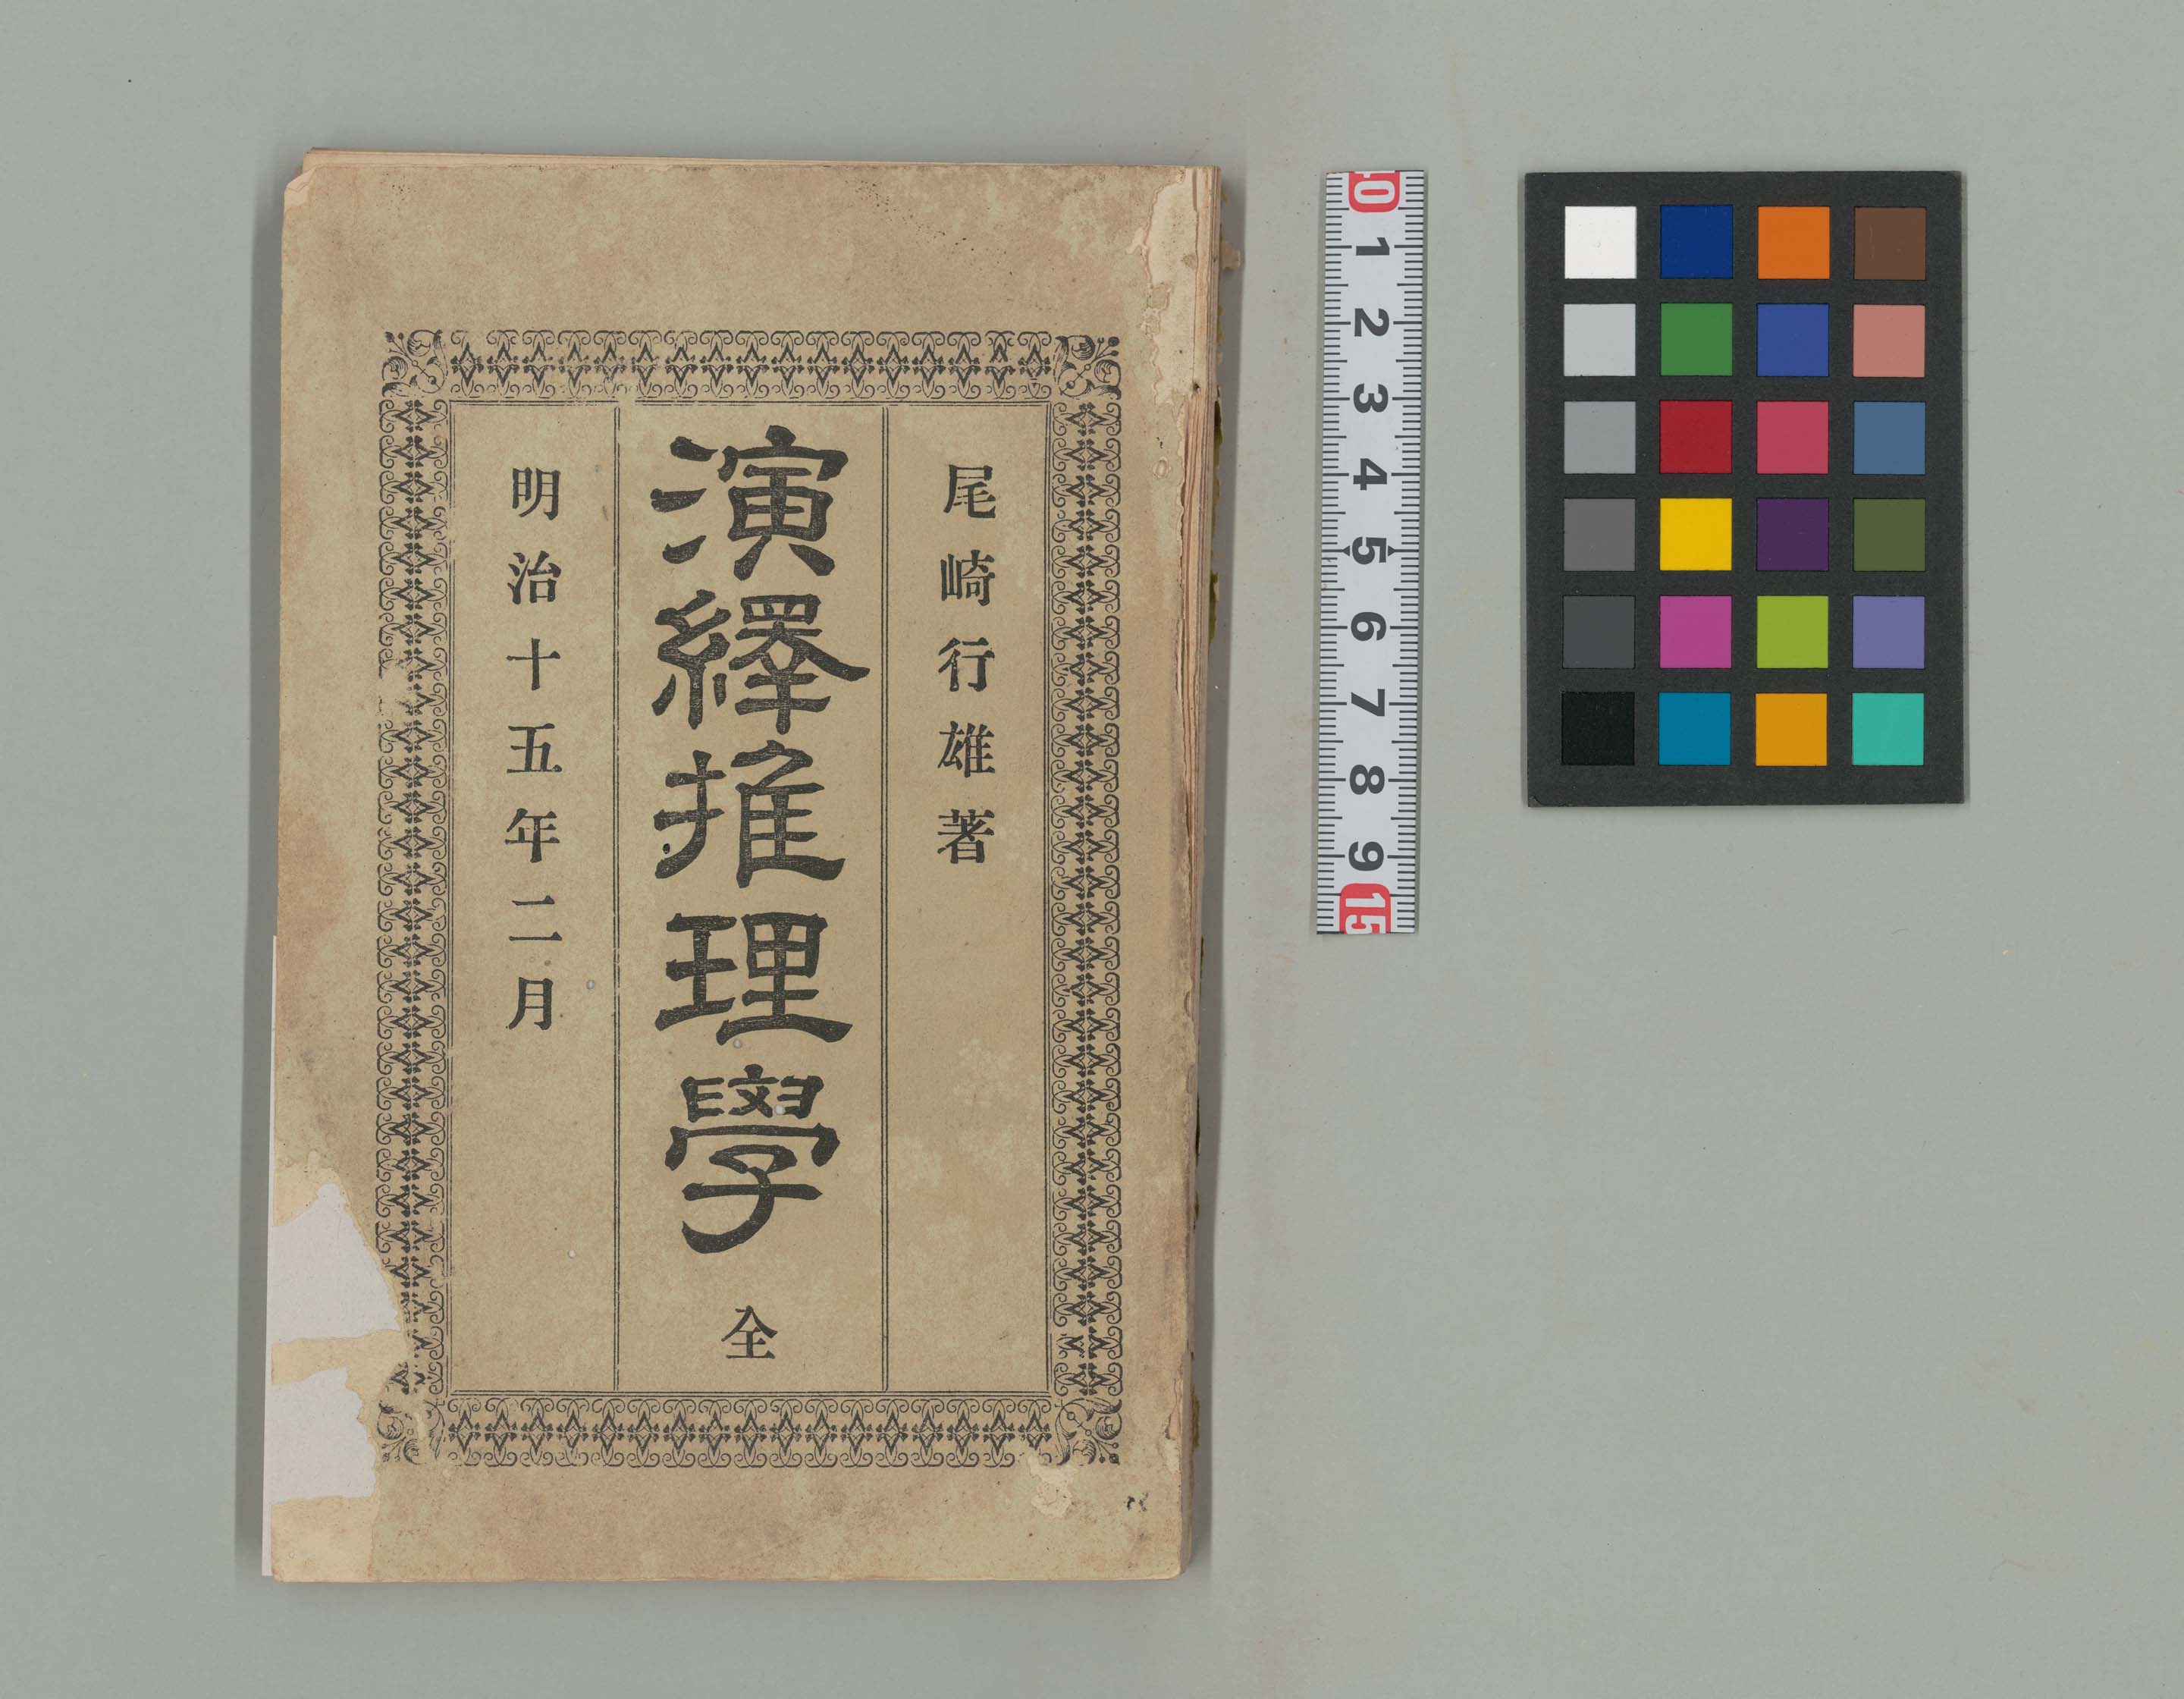 尾崎行雄著
演繹推理學 全
明治十五年二月
10
1
2
3
4
5
6
7
8
9
15